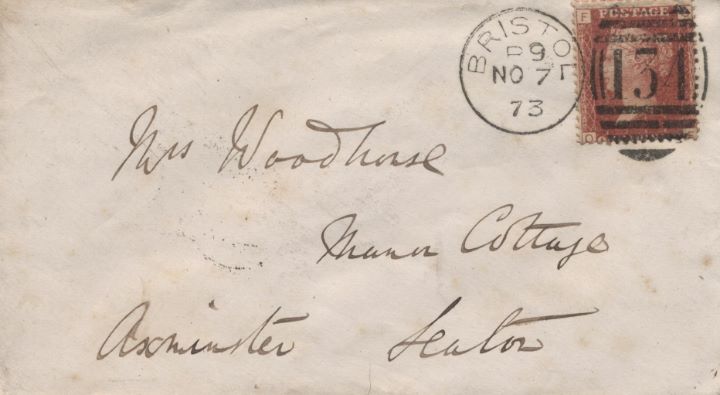 BRISTOL
P9
NO 7
73
F
POSTAGE
134
Q
Mrs Woodhouse
Manor Cottage
Axminster Seaton